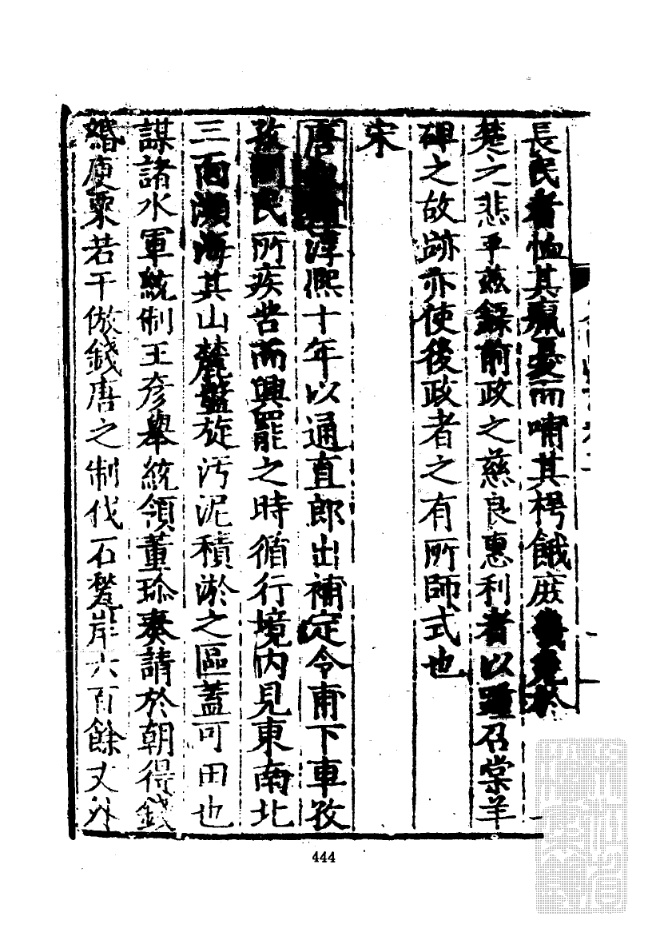 長民者恤其瘋憂而哺其枵餓庶
楚之悲乎兹錄前政之慈良惠利者以踵召棠羊
碑之故跡亦使後政者之有所師式也
宋
唐淳熙十年以通直郎出補定令甫下車孜
孜民所疾苦而興罷之時循行境内見東南北
三面瀕海其山麓盤旋污泥積淤之區蓋可田也
謀諸水軍統制王彦舉統領董珍奏請於朝得錢
緡庾粟若干倣錢唐之制伐石甃岸六百餘丈外
444